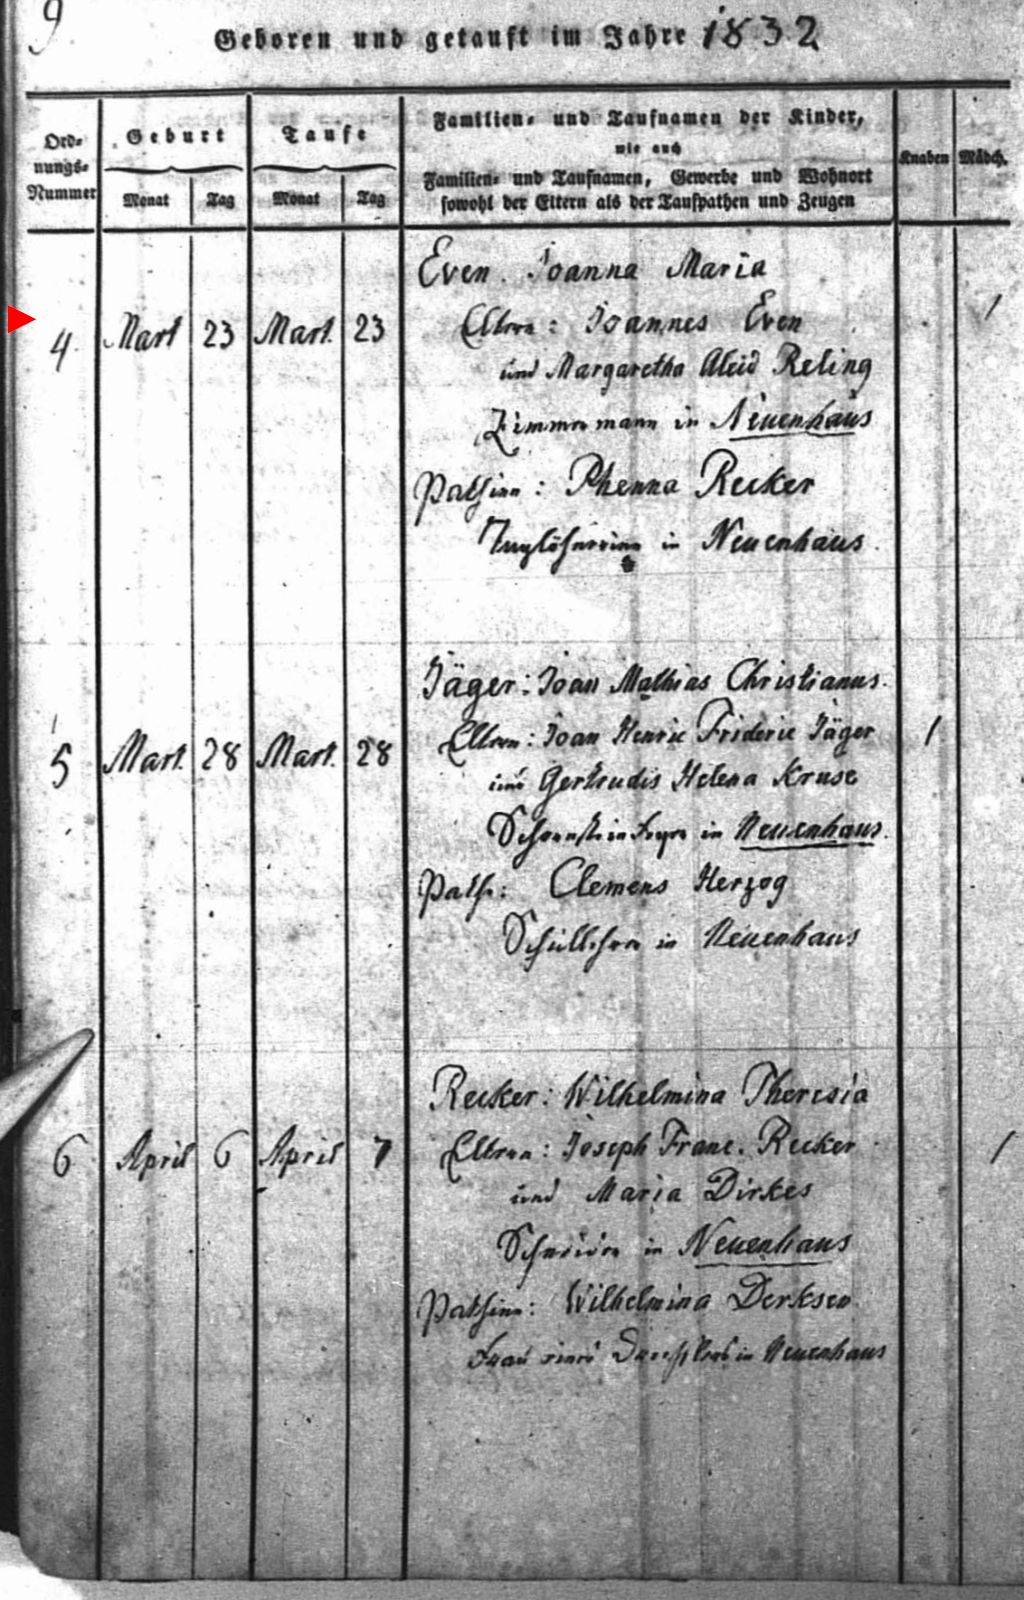 9
Geboren und getauft im Jahre 1832
Ord-
nungs-
Nummer
Geburt
Taufe
Monat Tag Monat Tag
Familien- und Taufnamen der Kinder,
wie auch
Familien- und Taufnamen, Gewerbe und Wohnort
sowohl der Eltern als der Taufpathen und Zeugen
Knaben Mädch.
Even. Joanna Maria
4. Mart 23 Mart. 23 Eltern: Joannes Even 1
und Margaretha Aleid Reling
Zimmermann in Neuenhaus
Pathinn: Phenna Recker
in Neuenhaus
Jäger: Joan Mathias Christianus.
5 Mart. 28 Mart. 28 Eltern: Joan Henric Frideric Jäger 1
und Gertrudis Helena Kruse
Schornsteinfeger in Neuenhaus.
Pathe: Clemens Herzog
Schullehrer in Neuenhaus
Recker: Wilhelmina Theresia
6 April 6 April 7 Eltern: Joseph Franc. Recker 1
und Maria Dirkes
Schneider in Neuenhaus
Pathinn: Wilhelmina Derksen
Frau eines in Neuenhaus